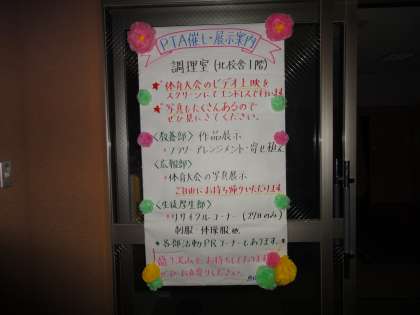 PTA催し・展示案内
調理室(北校舎1階)
★体育大会のビデオ上映を
スクリーンにてエンドレスで行います
★写真もたくさんあるので
ぜひ見にきてください。
〈教養部〉作品展示
・フラワーアレンジメント・寄せ植え
〈広報部〉
・体育大会の写真展示
ご自由にお持ち帰りいただけます
〈生徒厚生部〉
・リサイクルコーナー(
のみ)
制服・体操服 他
★各部活動PRコーナーもあります。
お待ちしております
お立寄りください。